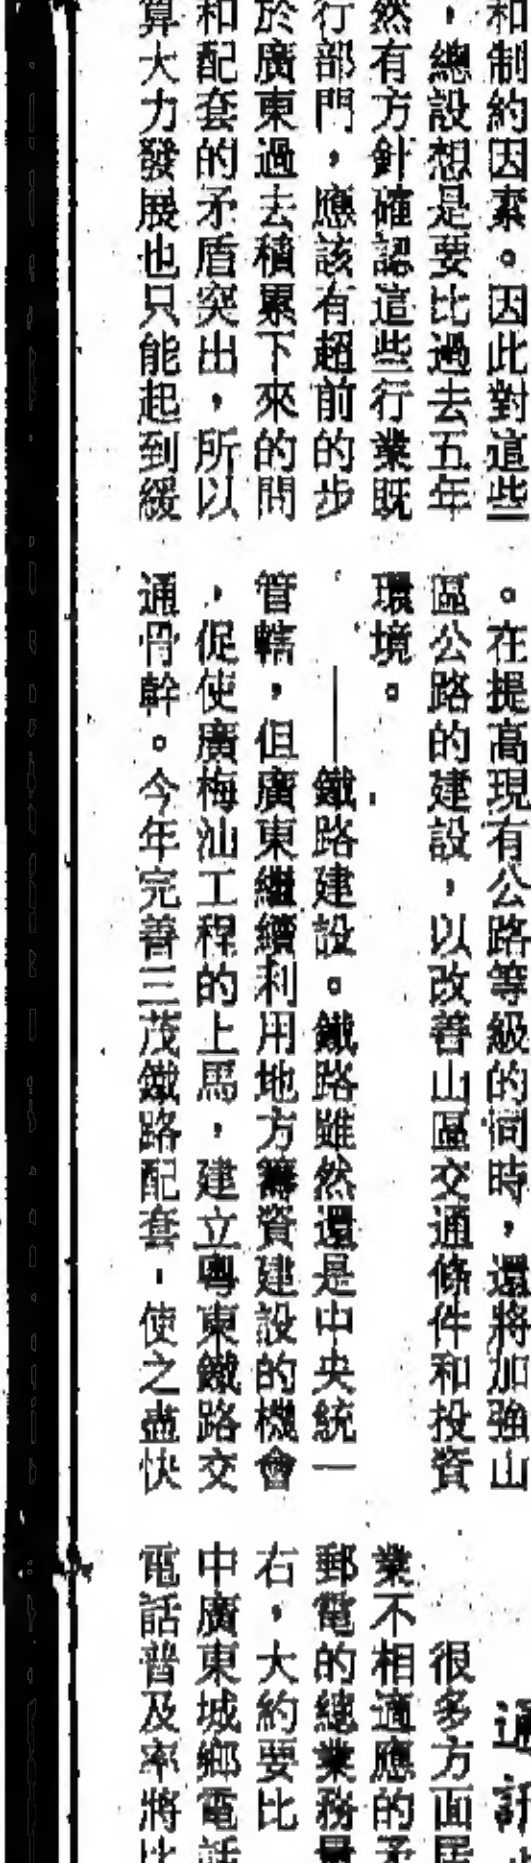 和制約因素。因此對這些
，總設想是要比過去五年
然有方針確認這些行業既
行部門，應該有超前的步
於廣東過去積累下來的問
和配套的矛盾突出，所以
算大力發展也只能起到緩
。在提高現有公路等級的同時，還將加強山
區公路的建設，以改善山區交通條件和投資
環境。
——鐵路建設。鐵路雖然還是中央統一
管轄，但廣東繼續利用地方籌資建設的機會
，促使廣梅汕工程的上馬，建立粵東鐵路交
通骨幹。今年完善三茂鐵路配套，使之盡快
通訊
很多方面
業不相適應的矛
郵電的總業務量
右，大約要比
中廣東城鄉電話
電話普及率將比